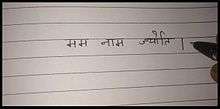 मम नाम ज्योति ।